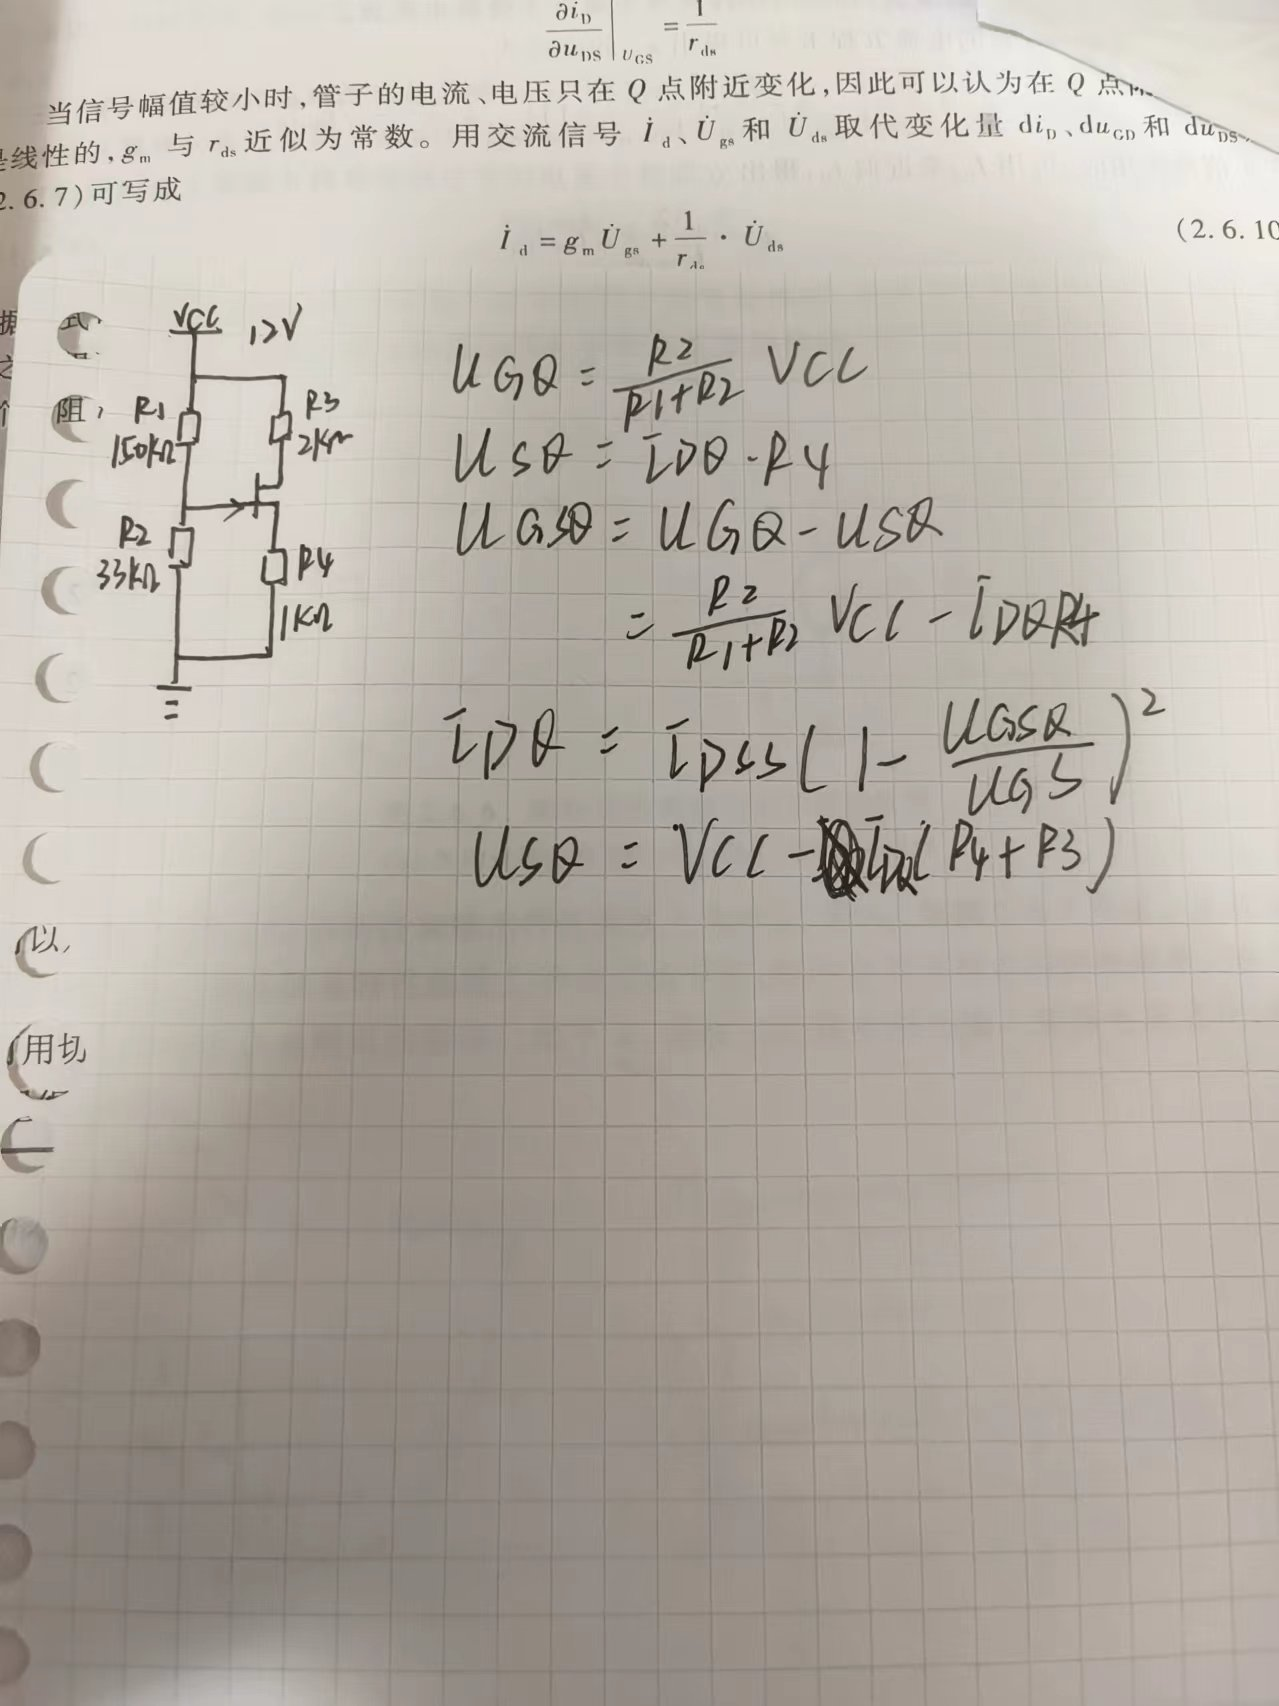 ∂i_D / ∂u_DS |U_GS = 1 / r_ds
当信号幅值较小时,管子的电流、电压只在 Q 点附近变化,因此可以认为在 Q 点
线性的,g_m 与 r_ds 近似为常数。用交流信号 İ_d、U̇_gs 和 U̇_ds 取代变化量 di_D、du_GD 和 du_DS,
2.6.7)可写成
İ_d = g_m U̇_gs + 1/r_ds · U̇_ds (2.6.10
据
式,
之
个
阻,
VCC 12V
R1 150KΩ
R3 2KΩ
R2 33KΩ
R4 1KΩ
UGQ = R2/(R1+R2) VCC
USQ = IDQ·R4
UGSQ = UGQ - USQ
= R2/(R1+R2) VCC - IDQR4
IDQ = IDSS(1 - UGSQ/UGS)²
USQ = VCC - IDQ(R4+R3)
以,
用切